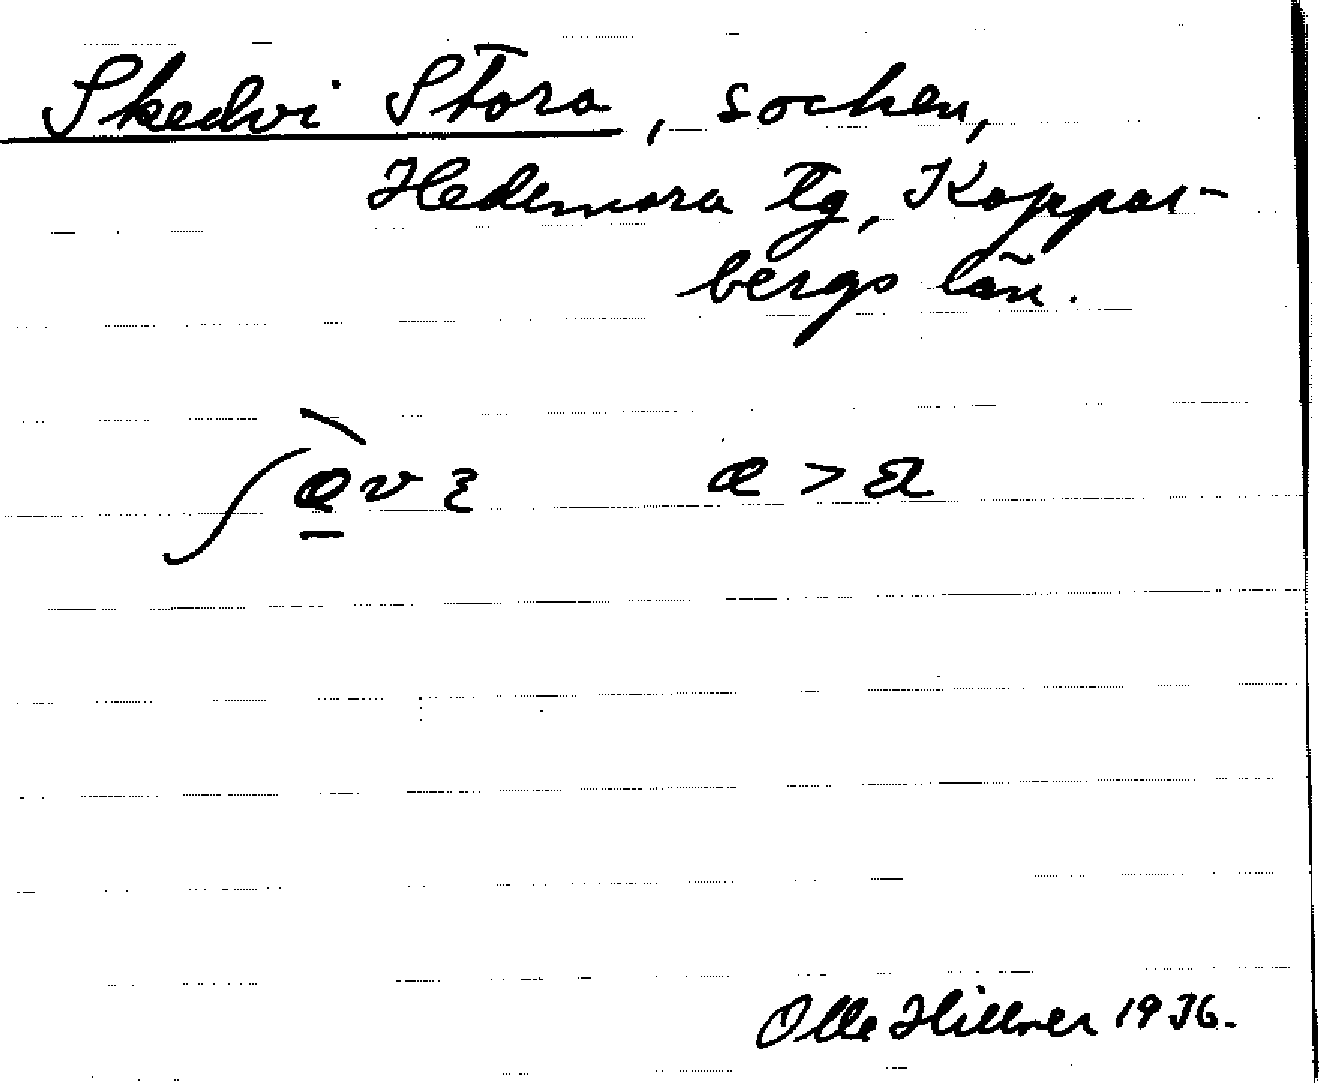 Skedvi Stora, socken,
Hedemora tg, Koppar-
bergs län.
Olle Hillner 1936.